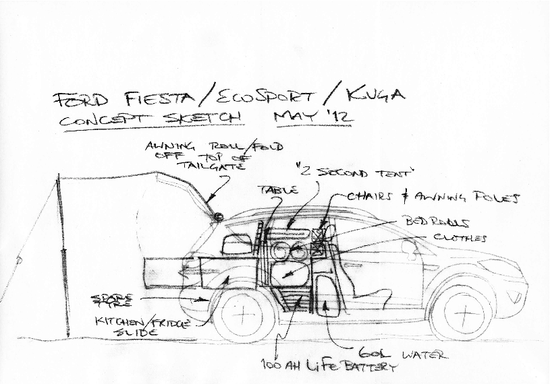 FORD FIESTA/ECOSPORT/KUGA
CONCEPT SKETCH MAY '12
AWNING ROLL/FOLD
OFF TOP OF
TAILGATE
"2 SECOND TENT"
TABLE
CHAIRS & AWNING POLES
BEDROLLS
CLOTHES
SPARE
TYRE
KITCHEN/FRIDGE
SLIDE
100 AH LiFe BATTERY
60L WATER